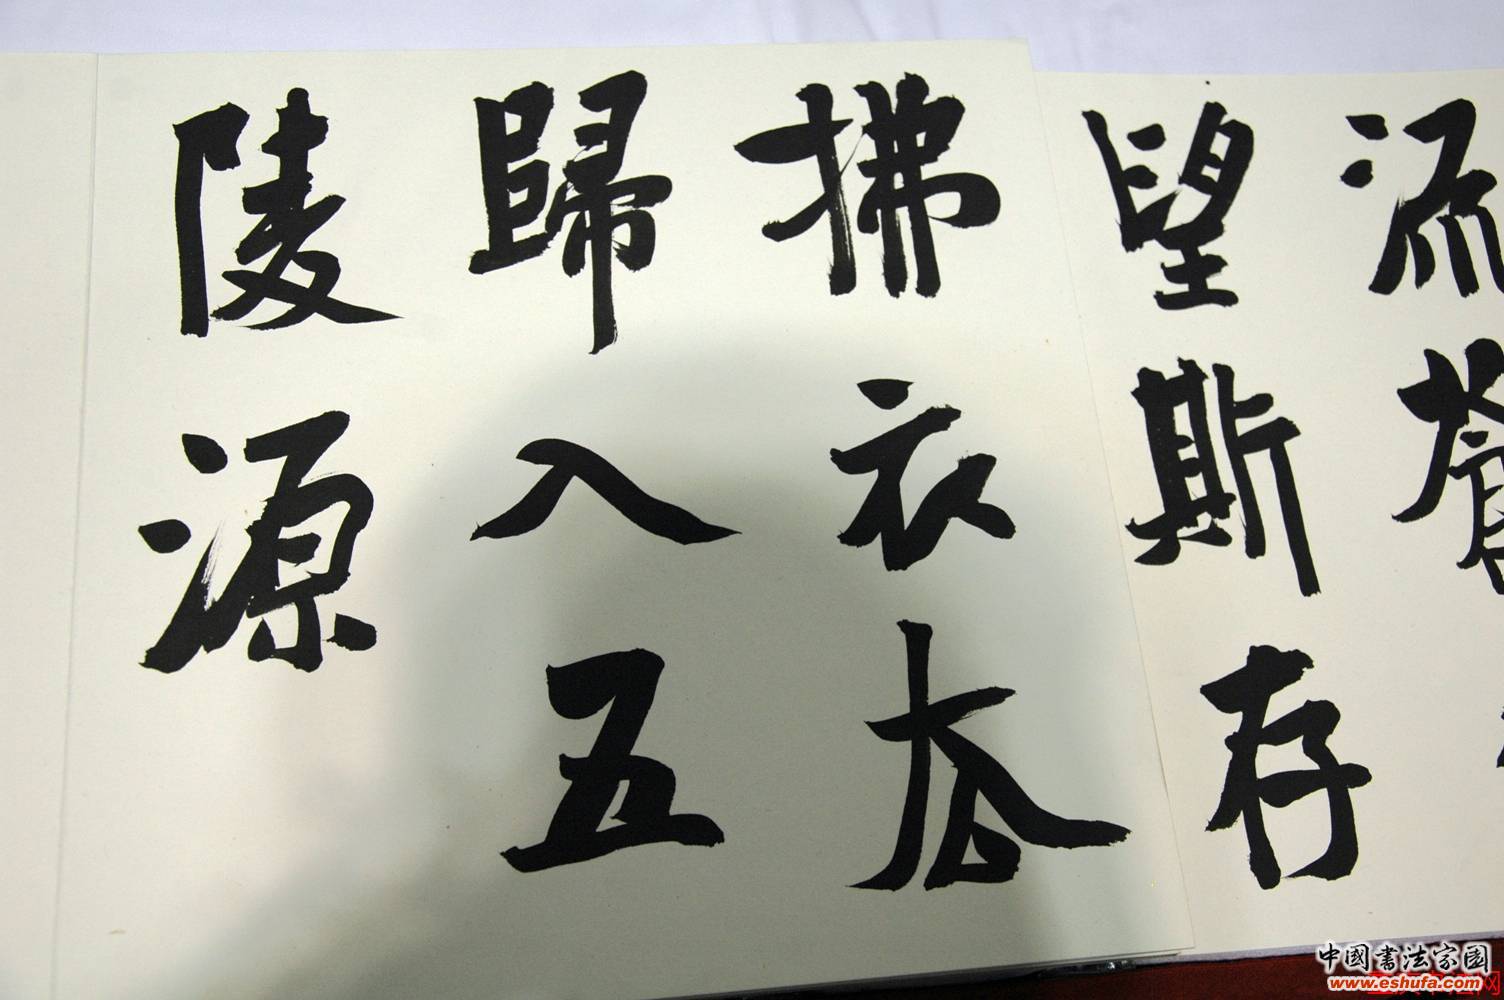 流蒼
望斯存
拂衣去
歸入五
陵源
中國書法家園
www.eshufa.com